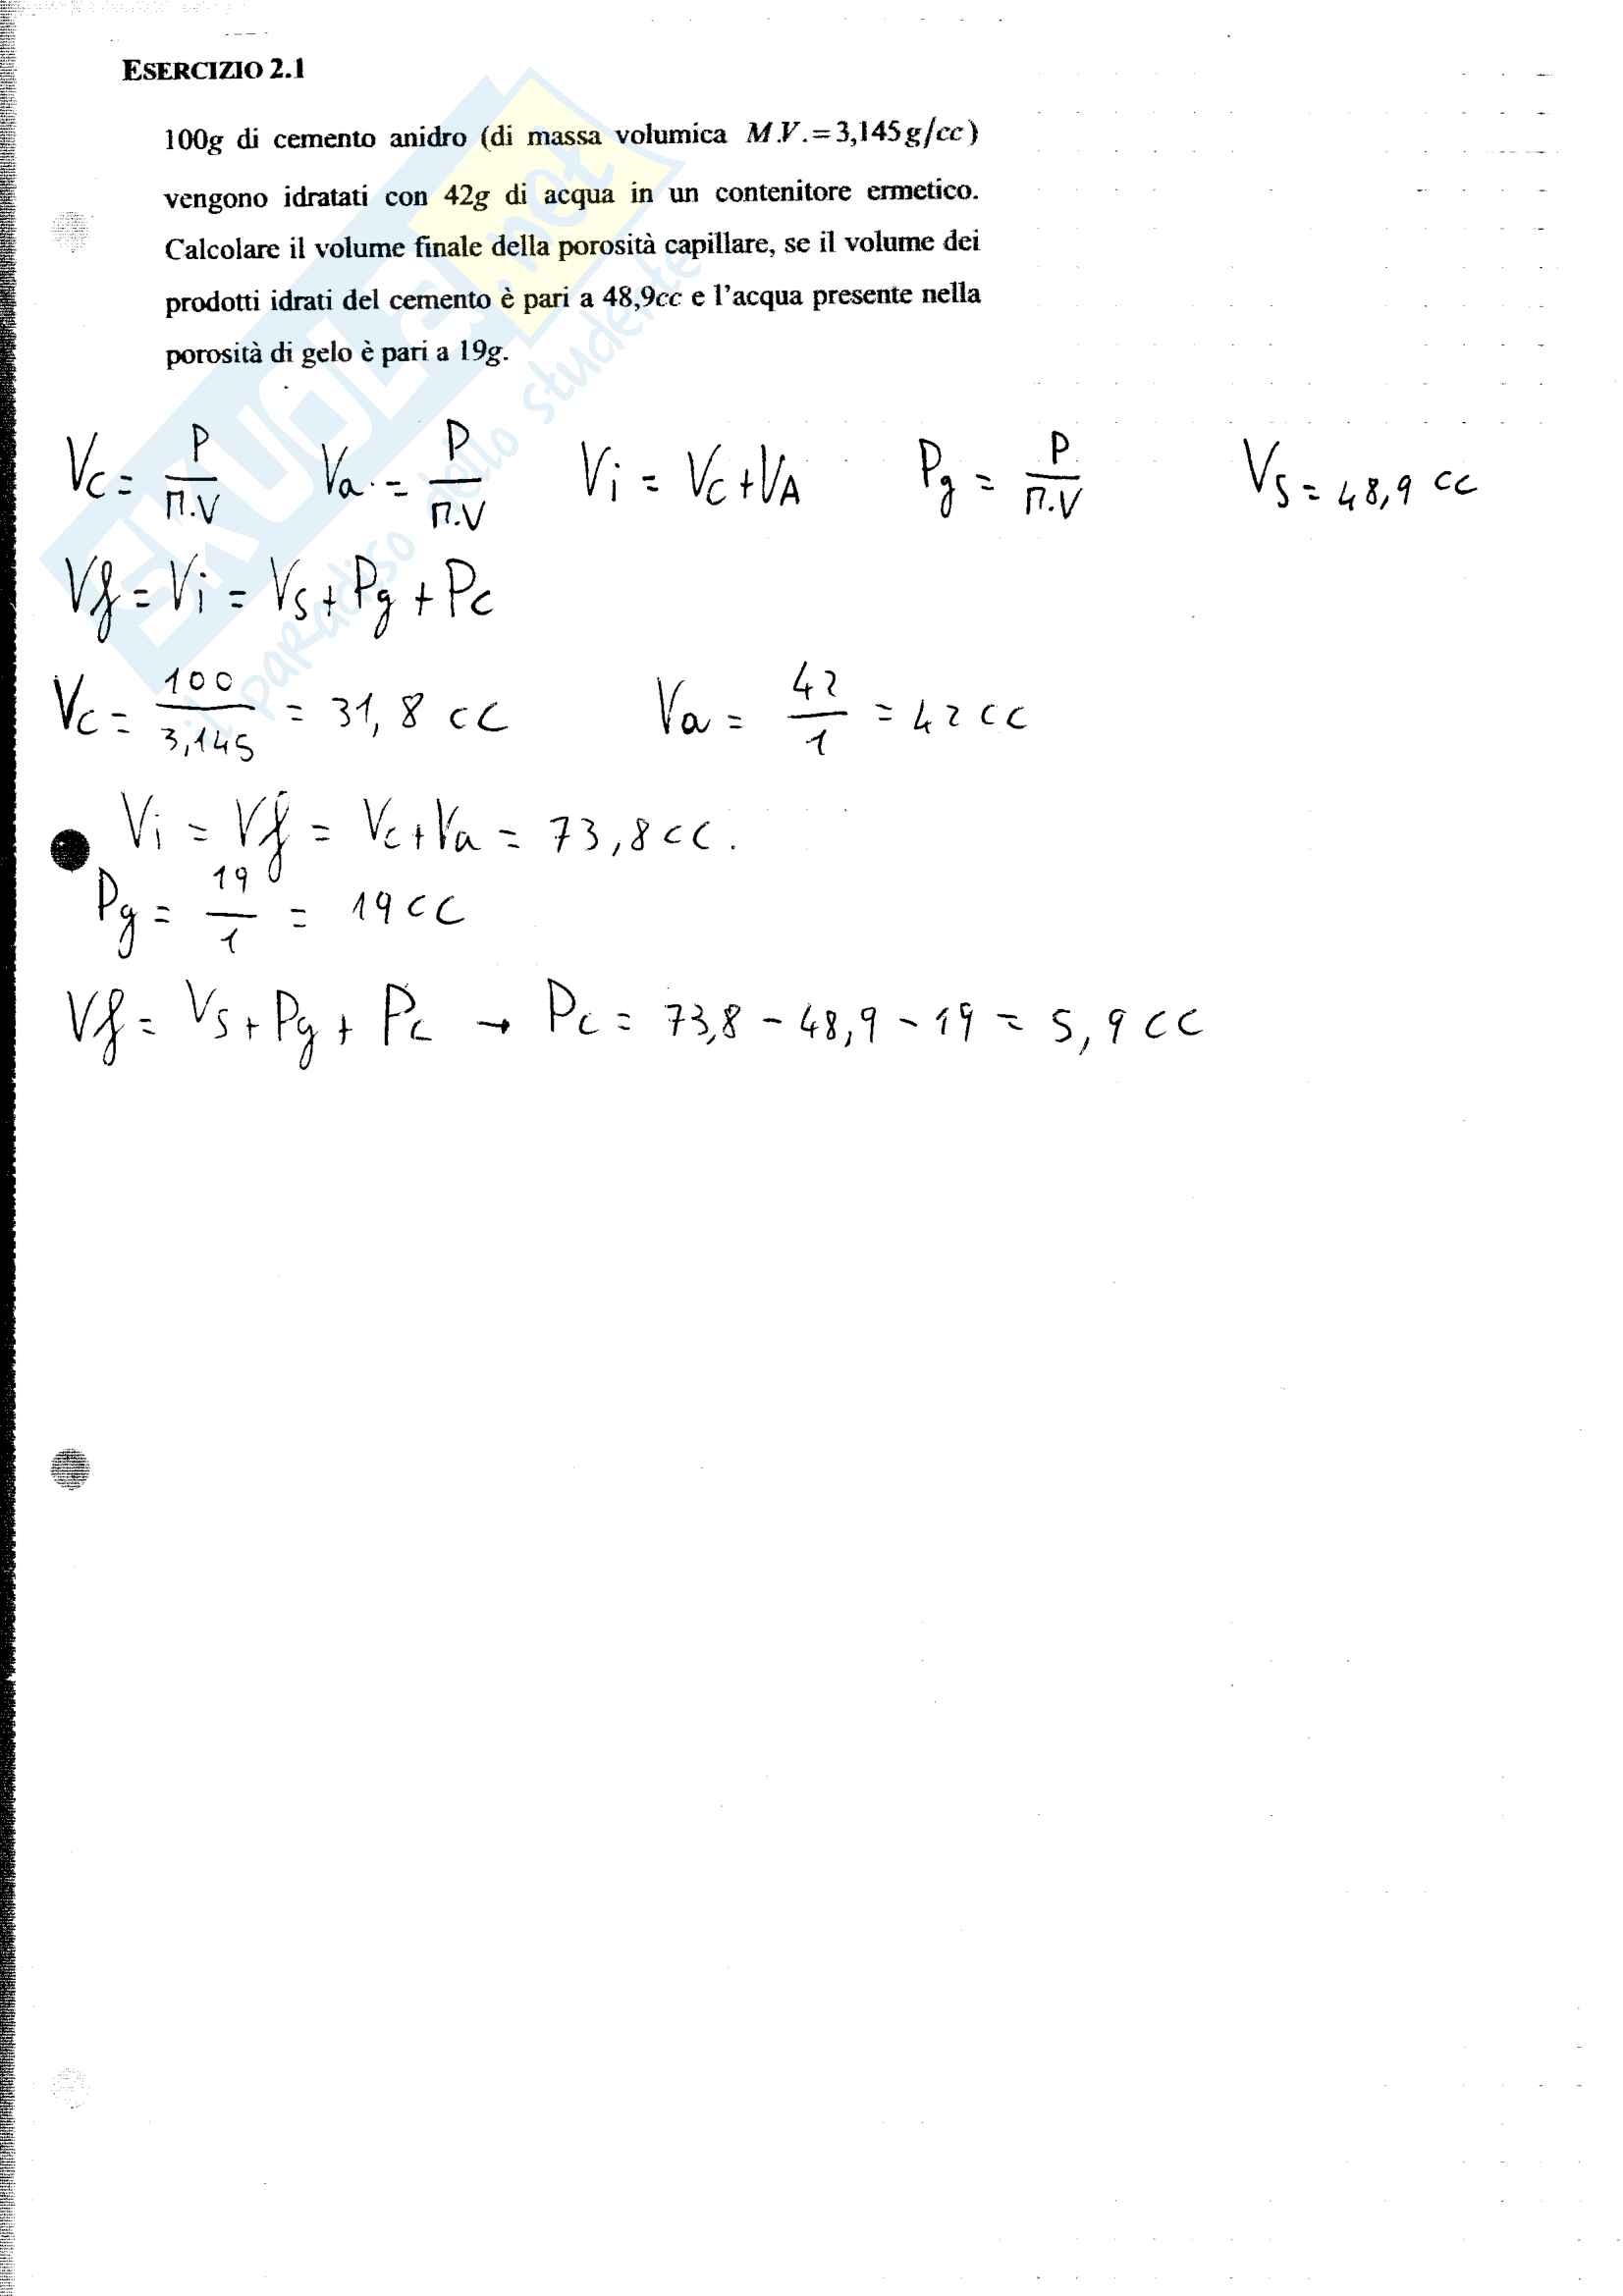 ESERCIZIO 2.1
100g di cemento anidro (di massa volumica M.V.=3,145g/cc)
vengono idratati con 42g di acqua in un contenitore ermetico.
Calcolare il volume finale della porosità capillare, se il volume dei
prodotti idrati del cemento è pari a 48,9cc e l'acqua presente nella
porosità di gelo è pari a 19g.
SKUOLA.net
il paradiso dello studente
Vc = P/M.V Va = P/M.V Vi = Vc + VA Pg = P/M.V Vs = 48,9 cc
Vf = Vi = Vs + Pg + Pc
Vc = 100/3,145 = 31,8 cc Va = 42/1 = 42 cc
Vi = Vf = Vc + Va = 73,8 cc.
Pg = 19/1 = 19 cc
Vf = Vs + Pg + Pc → Pc = 73,8 - 48,9 - 19 = 5,9 cc